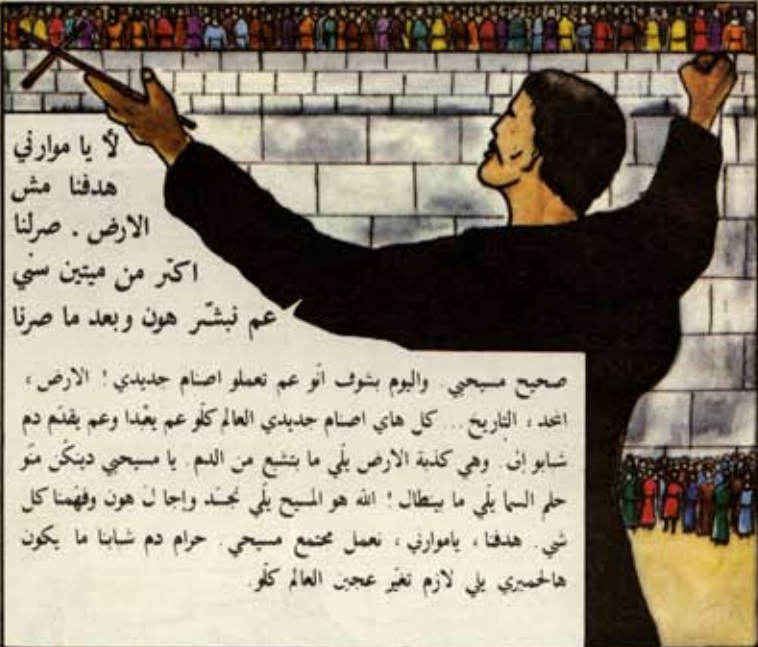 لأ يا موارني
هدفنا مش
الارض . صرلنا
اكتر من ميتين سني
عم نبشّر هون وبعد ما صرنا
صحيح مسيحيي . واليوم بشوف انّو عم تعملو اصنام جديدي ! الارض ،
المجد ، التاريخ ... كل هاي اصنام جديدي العالم كلّو عم يعْبدا وعم يقدّم دم
شبابو إلن . وهي كذبة الارض يلّي ما بتشبع من الدم . يا مسيحيي دينكُن منّو
حلم السما يلّي ما بينطال ! الله هو المسيح يلّي تجسّد وإجا لَ هون وفهّمنا كل
شي . هدفنا ، ياموارني ، نعمل مجتمع مسيحي . حرام دم شبابنا ما يكون
هالخميري يلي لازم تغيّر عجين العالم كلّو .